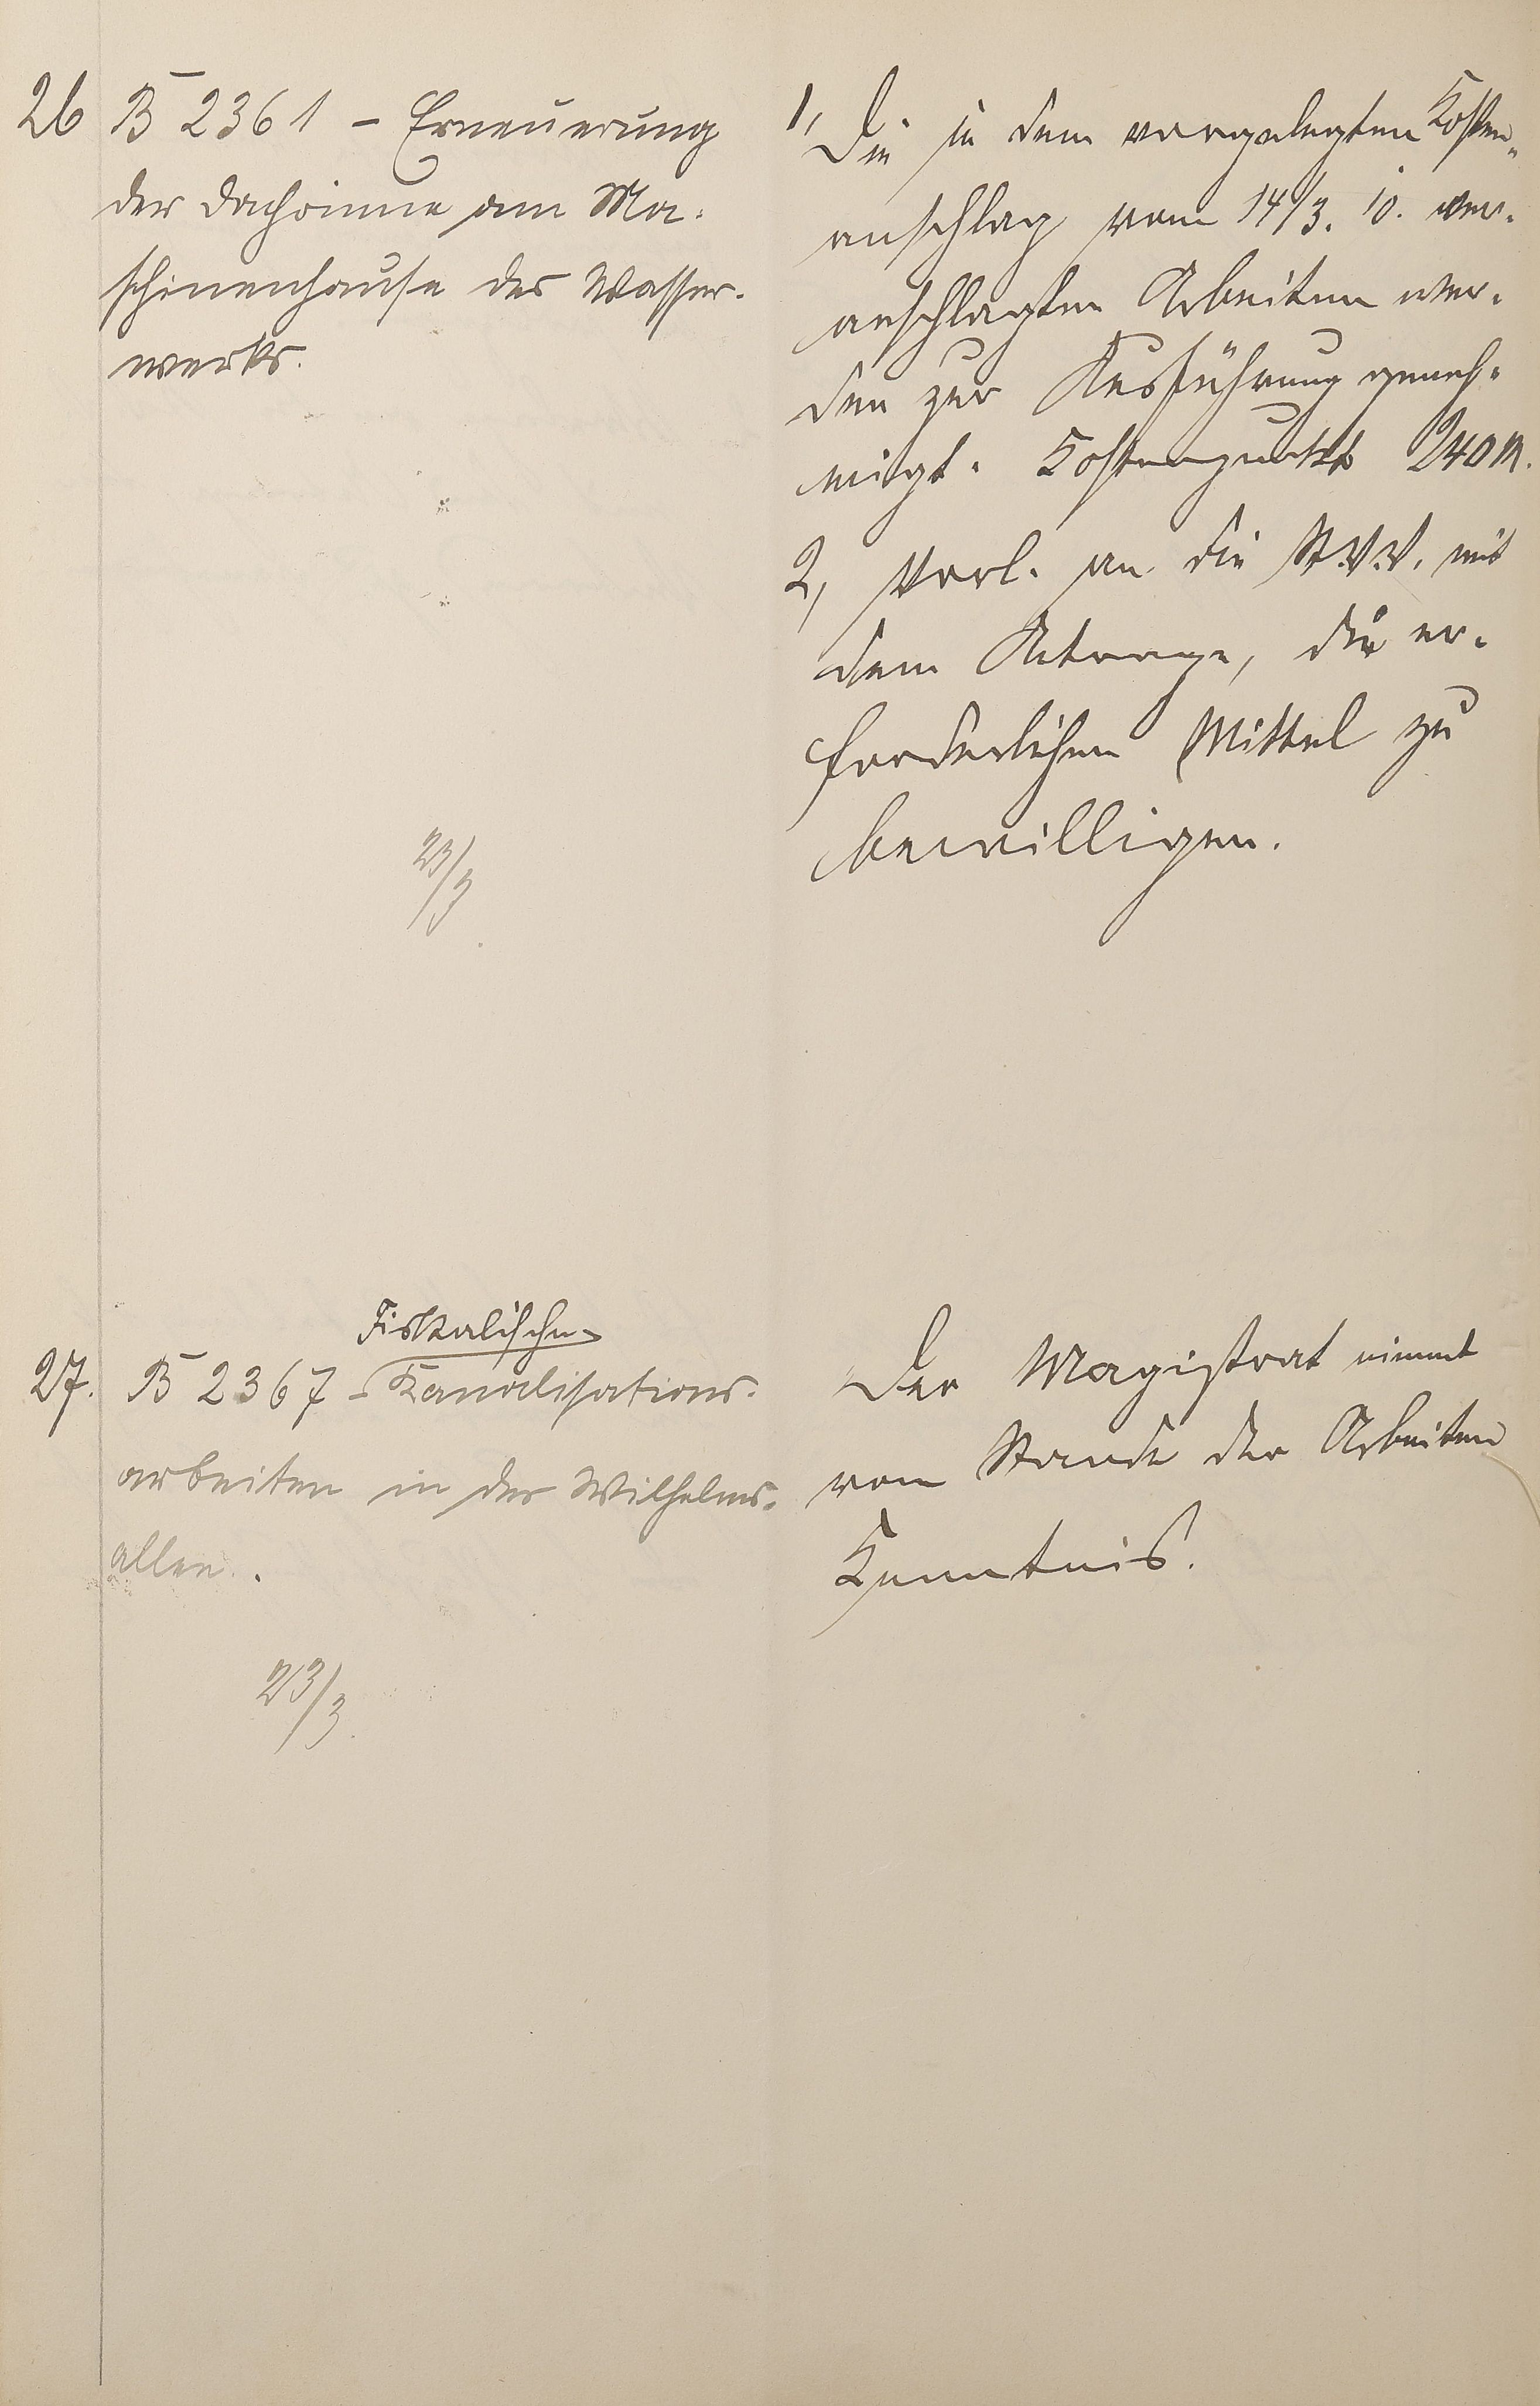 26 B 2361 – Erneuerung
der Dachrinne am Ma-
schinenhause des Wasser-
werks.
23/3
1, Die in dem vorgelegten Kosten-
anschlag vom 14/3. 10. ver-
anschlagten Arbeiten wer-
den zur Ausführung geneh-
migt. Kostenpunkt 240 M.
2, Vorl. an die St.V.V. mit
dem Antrage, die er-
forderlichen Mittel zu
bewilligen.
Fiskalische
27. B 2367 – Kanalisations-
arbeiten in der Wilhelms-
allee.
23/3.
Der Magistrat nimmt
vom Stande der Arbeiten
Kenntnis.